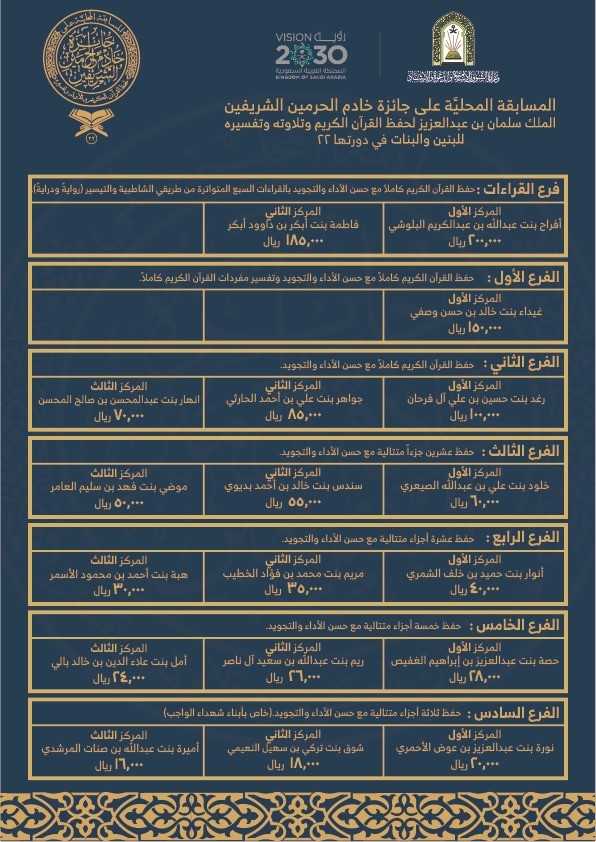 رؤيــة VISION
2030
المملكة العربية السعودية
KINGDOM OF SAUDI ARABIA
٢٢
المسابقة المحليَّة على جائزة خادم الحرمين الشريفين
الملك سلمان بن عبدالعزيز لحفظ القرآن الكريم وتلاوته وتفسيره
للبنين والبنات في دورتها ٢٢
فرع القراءات : حفظ القرآن الكريم كاملاً مع حسن الأداء والتجويد بالقراءات السبع المتواترة من طريقي الشاطبية والتيسير (روايةً ودرايةً).
المركز الأول
أفراح بنت عبدالله بن عبدالكريم البلوشي
٢٠٠,٠٠٠ ريال
المركز الثاني
فاطمة بنت أبكر بن داوود أبكر
١٨٥,٠٠٠ ريال
الفرع الأول : حفظ القرآن الكريم كاملاً مع حسن الأداء والتجويد وتفسير مفردات القرآن الكريم كاملاً.
المركز الأول
غيداء بنت خالد بن حسن وصفي
١٥٠,٠٠٠ ريال
الفرع الثاني : حفظ القرآن الكريم كاملاً مع حسن الأداء والتجويد.
المركز الأول
رغد بنت حسين بن علي آل فرحان
١٠٠,٠٠٠ ريال
المركز الثاني
جواهر بنت علي بن أحمد الحارثي
٨٥,٠٠٠ ريال
المركز الثالث
انهار بنت عبدالمحسن بن صالح المحسن
٧٠,٠٠٠ ريال
الفرع الثالث : حفظ عشرين جزءاً متتالية مع حسن الأداء والتجويد.
المركز الأول
خلود بنت علي بن عبدالله الصيعري
٦٠,٠٠٠ ريال
المركز الثاني
سندس بنت خالد بن أحمد بديوي
٥٥,٠٠٠ ريال
المركز الثالث
موضي بنت فهد بن سليم العامر
٥٠,٠٠٠ ريال
الفرع الرابع : حفظ عشرة أجزاء متتالية مع حسن الأداء والتجويد.
المركز الأول
أنوار بنت حميد بن خلف الشمري
٤٠,٠٠٠ ريال
المركز الثاني
مريم بنت محمد بن فؤاد الخطيب
٣٥,٠٠٠ ريال
المركز الثالث
هبة بنت أحمد بن محمود الأسمر
٣٠,٠٠٠ ريال
الفرع الخامس : حفظ خمسة أجزاء متتالية مع حسن الأداء والتجويد.
المركز الأول
حصة بنت عبدالعزيز بن إبراهيم الغفيص
٢٨,٠٠٠ ريال
المركز الثاني
ريم بنت عبدالله بن سعيد آل ناصر
٢٦,٠٠٠ ريال
المركز الثالث
أمل بنت علاء الدين بن خالد بالي
٢٤,٠٠٠ ريال
الفرع السادس : حفظ ثلاثة أجزاء متتالية مع حسن الأداء والتجويد.(خاص بأبناء شهداء الواجب)
المركز الأول
نورة بنت عبدالعزيز بن عوض الأحمري
٢٠,٠٠٠ ريال
المركز الثاني
شوق بنت تركي بن سهيل النعيمي
١٨,٠٠٠ ريال
المركز الثالث
أميرة بنت عبدالله بن صنات المرشدي
١٦,٠٠٠ ريال